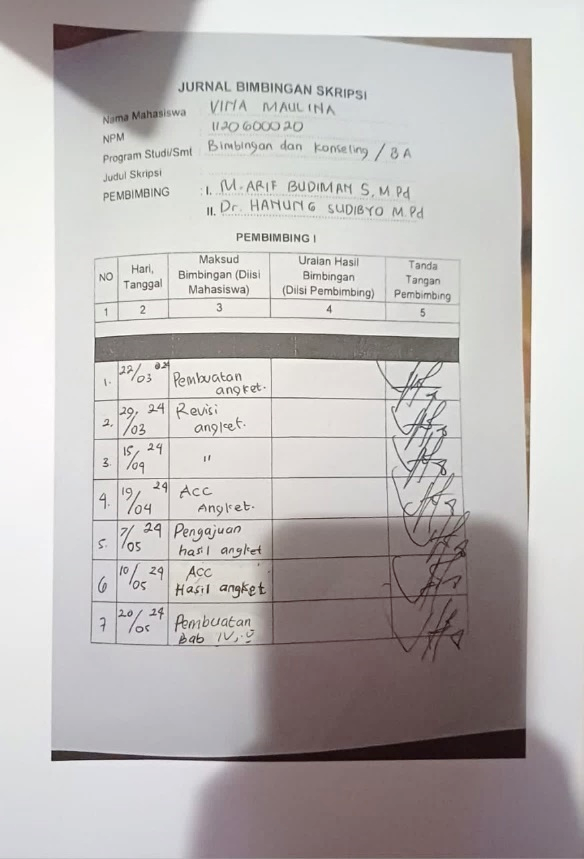 JURNAL BIMBINGAN SKRIPSI
Nama Mahasiswa VINA MAULINA
NPM 1120600020
Program Studi/Smt Bimbingan dan Konseling / 8A
Judul Skripsi
PEMBIMBING : I. M. ARIF BUDIMAN S, M Pd
II. Dr. HANUNG SUDIBYO M.Pd
PEMBIMBING I
NO Hari, Tanggal Maksud Bimbingan (Diisi Mahasiswa) Uraian Hasil Bimbingan (Diisi Pembimbing) Tanda Tangan Pembimbing
1 2 3 4 5
1. 22/03 024 Pembuatan angket.
2. 29/03 24 Revisi angket.
3. 15/04 24 "
4. 19/04 24 ACC Angket.
5. 7/05 24 Pengajuan hasil angket
6 10/05 24 ACC Hasil angket
7 20/05 24 Pembuatan Bab IV, V